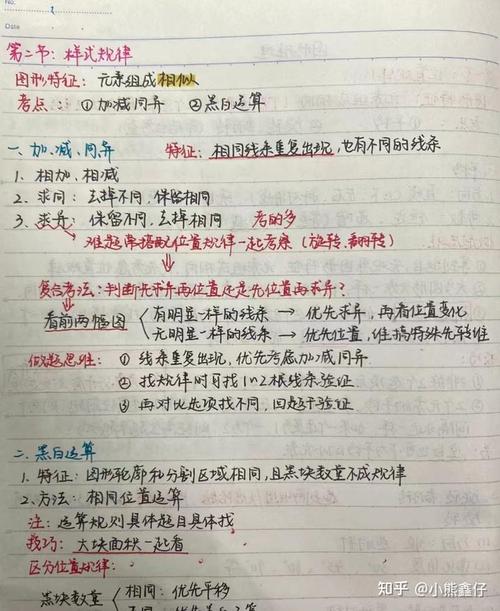 No.
Date
第二节：样式规律
图形特征：元素组成相似
考点：①加减同异 ②黑白运算
一、加、减、同异 特征：相同线条重复出现，也有不同的线条
1. 相加、相减
2. 求同：去掉不同，保留相同
3. 求异：保留不同，去掉相同 考的多
难题常搭配位置规律一起考察（旋转、翻转）
复合考法：判断先求异再位置还是先位置再求异？
看前两幅图
有明显一样的线条→优先求异，再看位置变化
无明显一样的线条→优先位置，谁搞特殊先转谁
做题思维：①线条重复出现，优先考虑加减同异
②找规律时可找1~2根线条验证
③再对比选项找不同，回题干验证
二、黑白运算
1. 特征：图形轮廓和分割区域相同，且黑块数量不成规律
2. 方法：相同位置运算
注：运算规则具体题目具体找
技巧：大块面积一起看
区分位置规律：
黑块数量 相同：优先平移
知乎 @小熊鑫仔